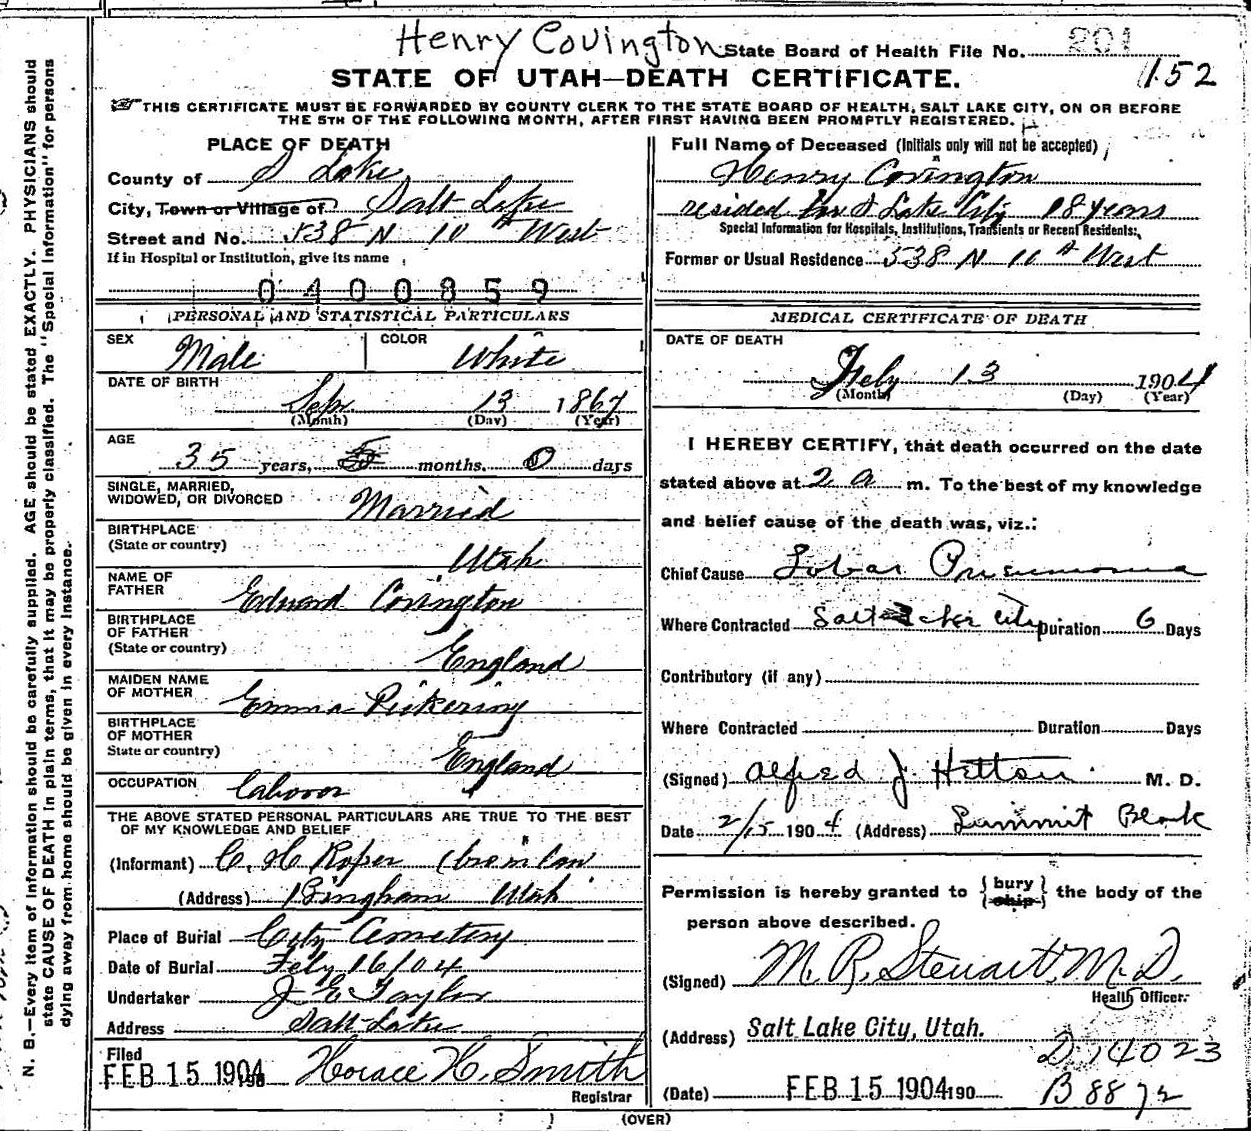 Henry Covington
State Board of Health File No. 201
152
STATE OF UTAH—DEATH CERTIFICATE.
THIS CERTIFICATE MUST BE FORWARDED BY COUNTY CLERK TO THE STATE BOARD OF HEALTH, SALT LAKE CITY, ON OR BEFORE
THE 5TH OF THE FOLLOWING MONTH, AFTER FIRST HAVING BEEN PROMPTLY REGISTERED.
N. B.—Every item of information should be carefully supplied. AGE should be stated EXACTLY. PHYSICIANS should
state CAUSE OF DEATH in plain terms, that it may be properly classified. The "Special Information" for persons
dying away from home should be given in every instance.
PLACE OF DEATH
County of S Lake
City, Town or Village of Salt Lake
Street and No. 538 N 10th West
If in Hospital or Institution, give its name
0400859
PERSONAL AND STATISTICAL PARTICULARS
SEX Male COLOR White
DATE OF BIRTH
Sep 13 1867
(Month) (Day) (Year)
AGE
35 years, 5 months. 0 days
SINGLE, MARRIED,
WIDOWED, OR DIVORCED Married
BIRTHPLACE
(State or country) Utah
NAME OF
FATHER Edward Covington
BIRTHPLACE
OF FATHER
(State or country) England
MAIDEN NAME
OF MOTHER Emma Pickering
BIRTHPLACE
OF MOTHER
State or country) England
OCCUPATION Laborer
THE ABOVE STATED PERSONAL PARTICULARS ARE TRUE TO THE BEST
OF MY KNOWLEDGE AND BELIEF
(Informant) C. H Roper (bro in law
(Address) Bingham Utah
Place of Burial City Cemetery
Date of Burial Feby 16/04
Undertaker J E Taylor
Address Salt Lake
Filed
FEB 15 1904 190 Horace H. Smith
Registrar
Full Name of Deceased (Initials only will not be accepted)
Henry Covington
resided in S Lake City 18 years
Special Information for Hospitals, Institutions, Transients or Recent Residents:
Former or Usual Residence 538 N 10th West
MEDICAL CERTIFICATE OF DEATH
DATE OF DEATH
Feby 13 1904
(Month) (Day) (Year)
I HEREBY CERTIFY, that death occurred on the date
stated above at 2 a m. To the best of my knowledge
and belief cause of the death was, viz.:
Chief Cause Lobar Pneumonia
Where Contracted Salt Lake City Duration 6 Days
Contributory (if any)
Where Contracted Duration Days
(Signed) Alfred J. M. D.
Date 2/15 1904 (Address) Summit Block
Permission is hereby granted to {bury
{ship} the body of the
person above described.
(Signed) M. R. Stewart, M. D.
Health Officer.
(Address) Salt Lake City, Utah.
D 14023
(Date) FEB 15 1904 190
B 8872
(OVER)